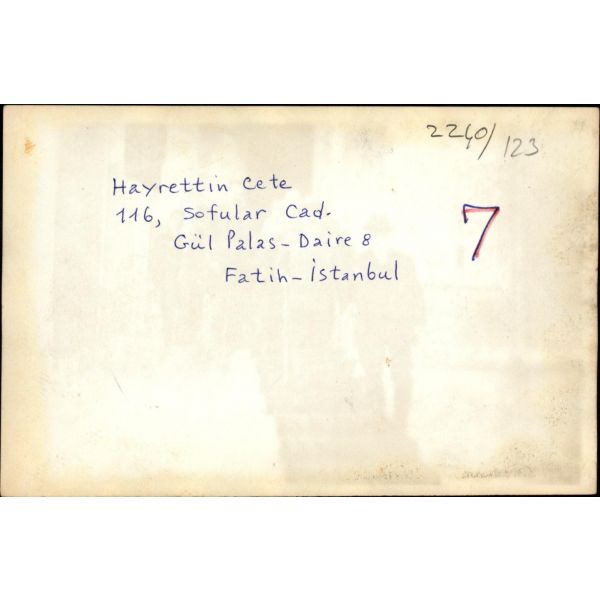 2240/123
Hayrettin Cete
116, Sofular Cad.
7
Gül Palas - Daire 8
Fatih - İstanbul